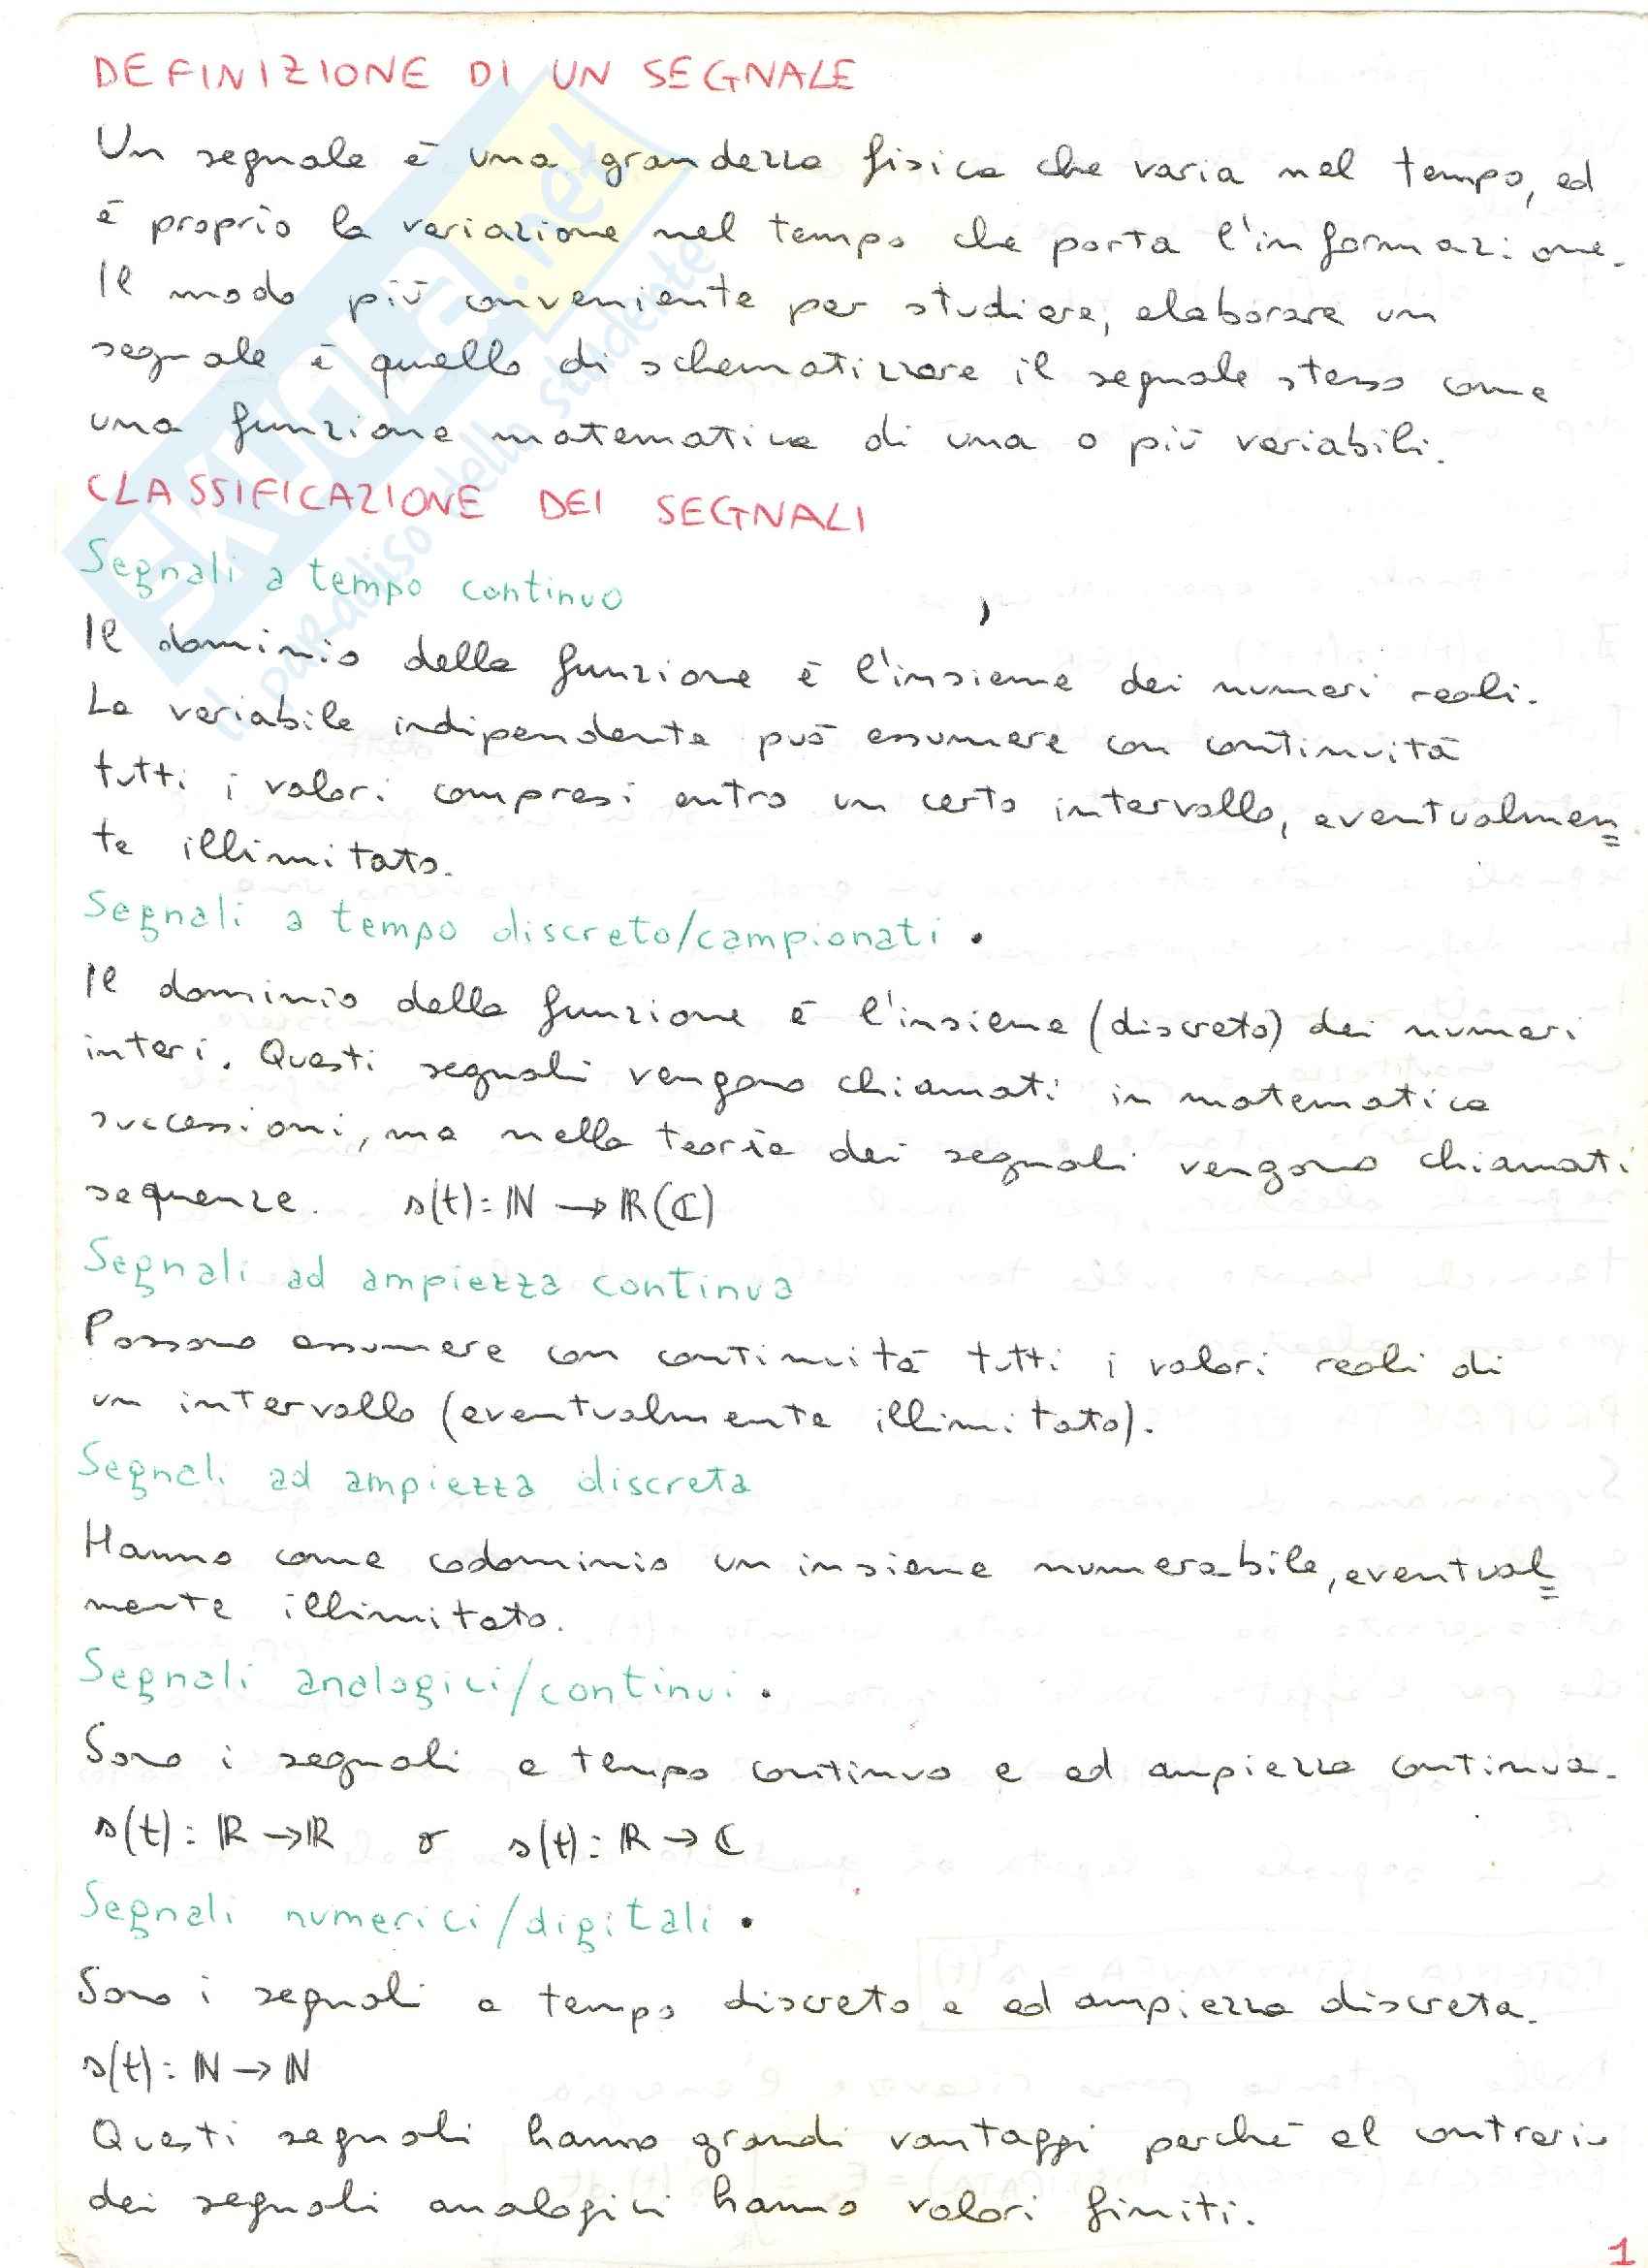 DEFINIZIONE DI UN SEGNALE
Un segnale è una grandezza fisica che varia nel tempo, ed
è proprio la variazione nel tempo che porta l'informazione.
Il modo più conveniente per studiare, elaborare un
segnale è quello di schematizzare il segnale stesso come
una funzione matematica di una o più variabili.
CLASSIFICAZIONE DEI SEGNALI
Segnali a tempo continuo
Il dominio della funzione è l'insieme dei numeri reali.
La variabile indipendente può assumere con continuità
tutti i valori compresi entro un certo intervallo, eventualmen=
te illimitato.
Segnali a tempo discreto/campionati.
Il dominio della funzione è l'insieme (discreto) dei numeri
interi. Questi segnali vengono chiamati in matematica
successioni, ma nella teoria dei segnali vengono chiamati
sequenze. s(t): ℕ → ℝ(ℂ)
Segnali ad ampiezza continua
Possono assumere con continuità tutti i valori reali di
un intervallo (eventualmente illimitato).
Segnali ad ampiezza discreta
Hanno come codominio un insieme numerabile, eventual=
mente illimitato.
Segnali analogici/continui.
Sono i segnali a tempo continuo e ad ampiezza continua.
s(t): ℝ → ℝ o s(t): ℝ → ℂ
Segnali numerici/digitali.
Sono i segnali a tempo discreto e ad ampiezza discreta.
s(t): ℕ → ℕ
Questi segnali hanno grandi vantaggi perché al contrario
dei segnali analogici hanno valori finiti.
1
SKUOLA.net
il paradiso dello studente